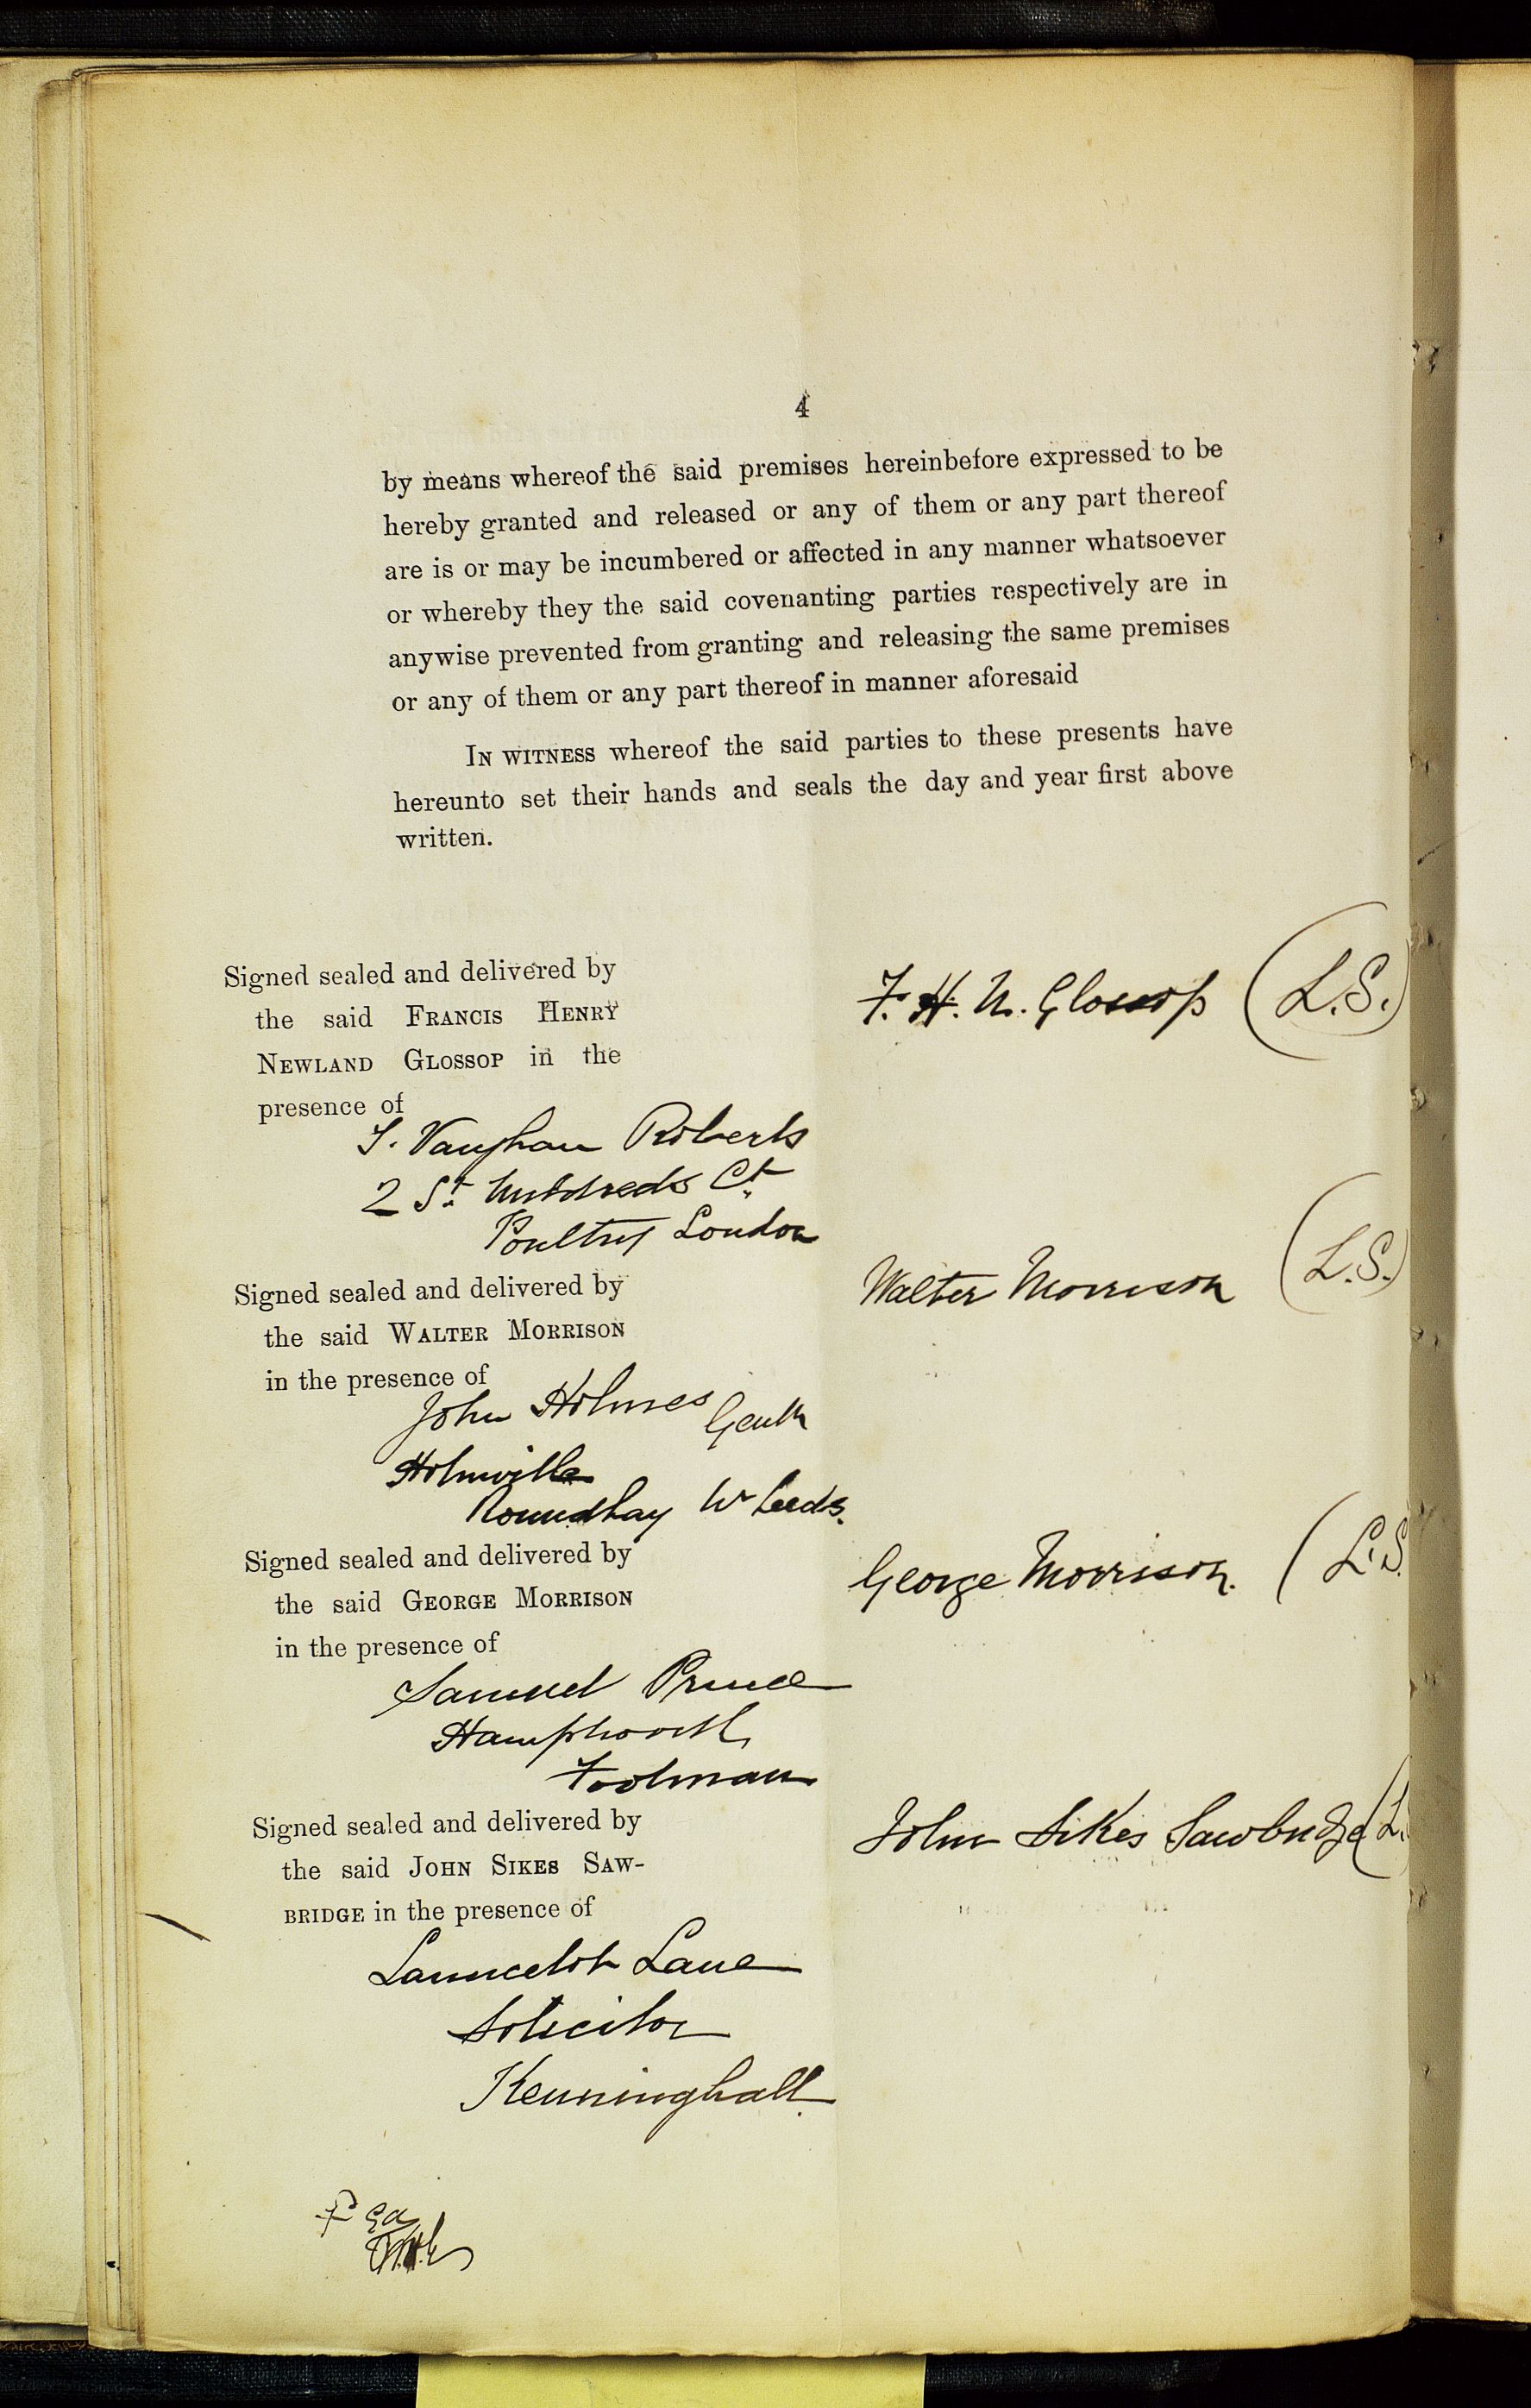 4
by means whereof the said premises hereinbefore expressed to be
hereby granted and released or any of them or any part thereof
are is or may be incumbered or affected in any manner whatsoever
or whereby they the said covenanting parties respectively are in
anywise prevented from granting and releasing the same premises
or any of them or any part thereof in manner aforesaid
IN WITNESS whereof the said parties to these presents have
hereunto set their hands and seals the day and year first above
written.
Signed sealed and delivered by
the said FRANCIS HENRY
NEWLAND GLOSSOP in the
presence of
F. H. N. Glossop (L.S.)
Vaughan Roberts
2 St. Mildreds Ct.
Poultry London
Signed sealed and delivered by
the said WALTER MORRISON
in the presence of
Walter Morrison (L.S.)
John Holmes Gentn
Holmville
Roundhay Nr Leeds.
Signed sealed and delivered by
the said GEORGE MORRISON
in the presence of
George Morrison. (L.S.
Samuel Prince
Hamphworth
Footman
Signed sealed and delivered by
the said JOHN SIKES SAW-
BRIDGE in the presence of
John Sikes Sawbridge (L.
Launcelot Lane
Solicitor
Kenninghall